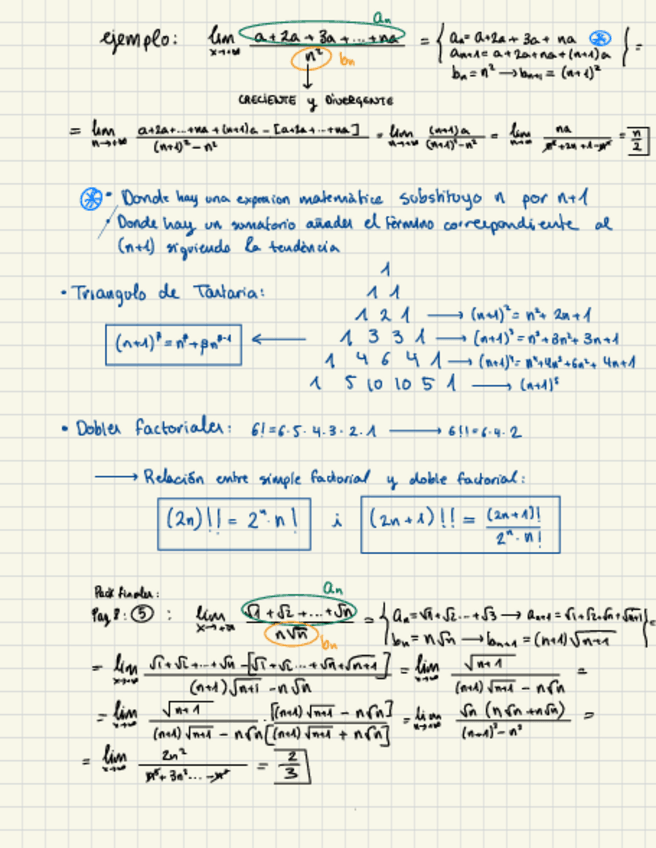 aₙ
ejemplo: lim x→+∞ (a+2a+3a+...+na)/n² = { aₙ = a+2a+3a+na * } =
aₙ₊₁ = a+2a+na+(n+1)a
bₙ
bₙ = n² → bₙ₊₁ = (n+1)²
CRECIENTE y DIVERGENTE
= lim n→+∞ (a+2a+...+na+(n+1)a-[a+2a+...+na])/((n+1)²-n²) = lim n→+∞ ((n+1)a)/((n+1)²-n²) = lim (na)/(n²+2n+1-n²) =
* • Donde hay una expresion matemàtica substituyo n por n+1
• Donde hay un sumatorio añades el término correspondiente al
(n+1) siguiendo la tendència
1
• Triangulo de Tartaria: 1 1
1 2 1 → (n+1)² = n²+2n+1
1 3 3 1 → (n+1)³ = n³+3n²+3n+1
1 4 6 4 1 → (n+1)⁴ = n⁴+4n³+6n²+4n+1
1 5 10 10 5 1 → (n+1)⁵
• Dobles factoriales: 6!=6·5·4·3·2·1 → 6!!=6·4·2
→ Relación entre simple factorial y doble factorial:
(2n)!! = 2ⁿ·n! i (2n+1)!! = (2n+1)!/(2ⁿ·n!)
aₙ
Pag 8: ⑤ : lim x→+∞ (√1+√2+...+√n)/(n√n) = { aₙ=√1+√2...+√3 → aₙ₊₁=√1+√2+√n+√n+1 } =
bₙ
bₙ = n√n → bₙ₊₁ = (n+1)√n+1
= lim x→+∞ (√1+√2+...+√n-[√1+√2+...+√n+√n+1])/((n+1)√n+1-n√n) = lim x→+∞ (√n+1)/((n+1)√n+1-n√n) =
= lim x→+∞ (√n+1)/((n+1)√n+1-n√n) · [(n+1)√n+1-n√n]/[(n+1)√n+1+n√n] = lim x→+∞ (√n(n√n+n√n))/((n+1)³-n³) =
= lim x→+∞ (2n²)/(n³+3n²...-n³) = 2/3